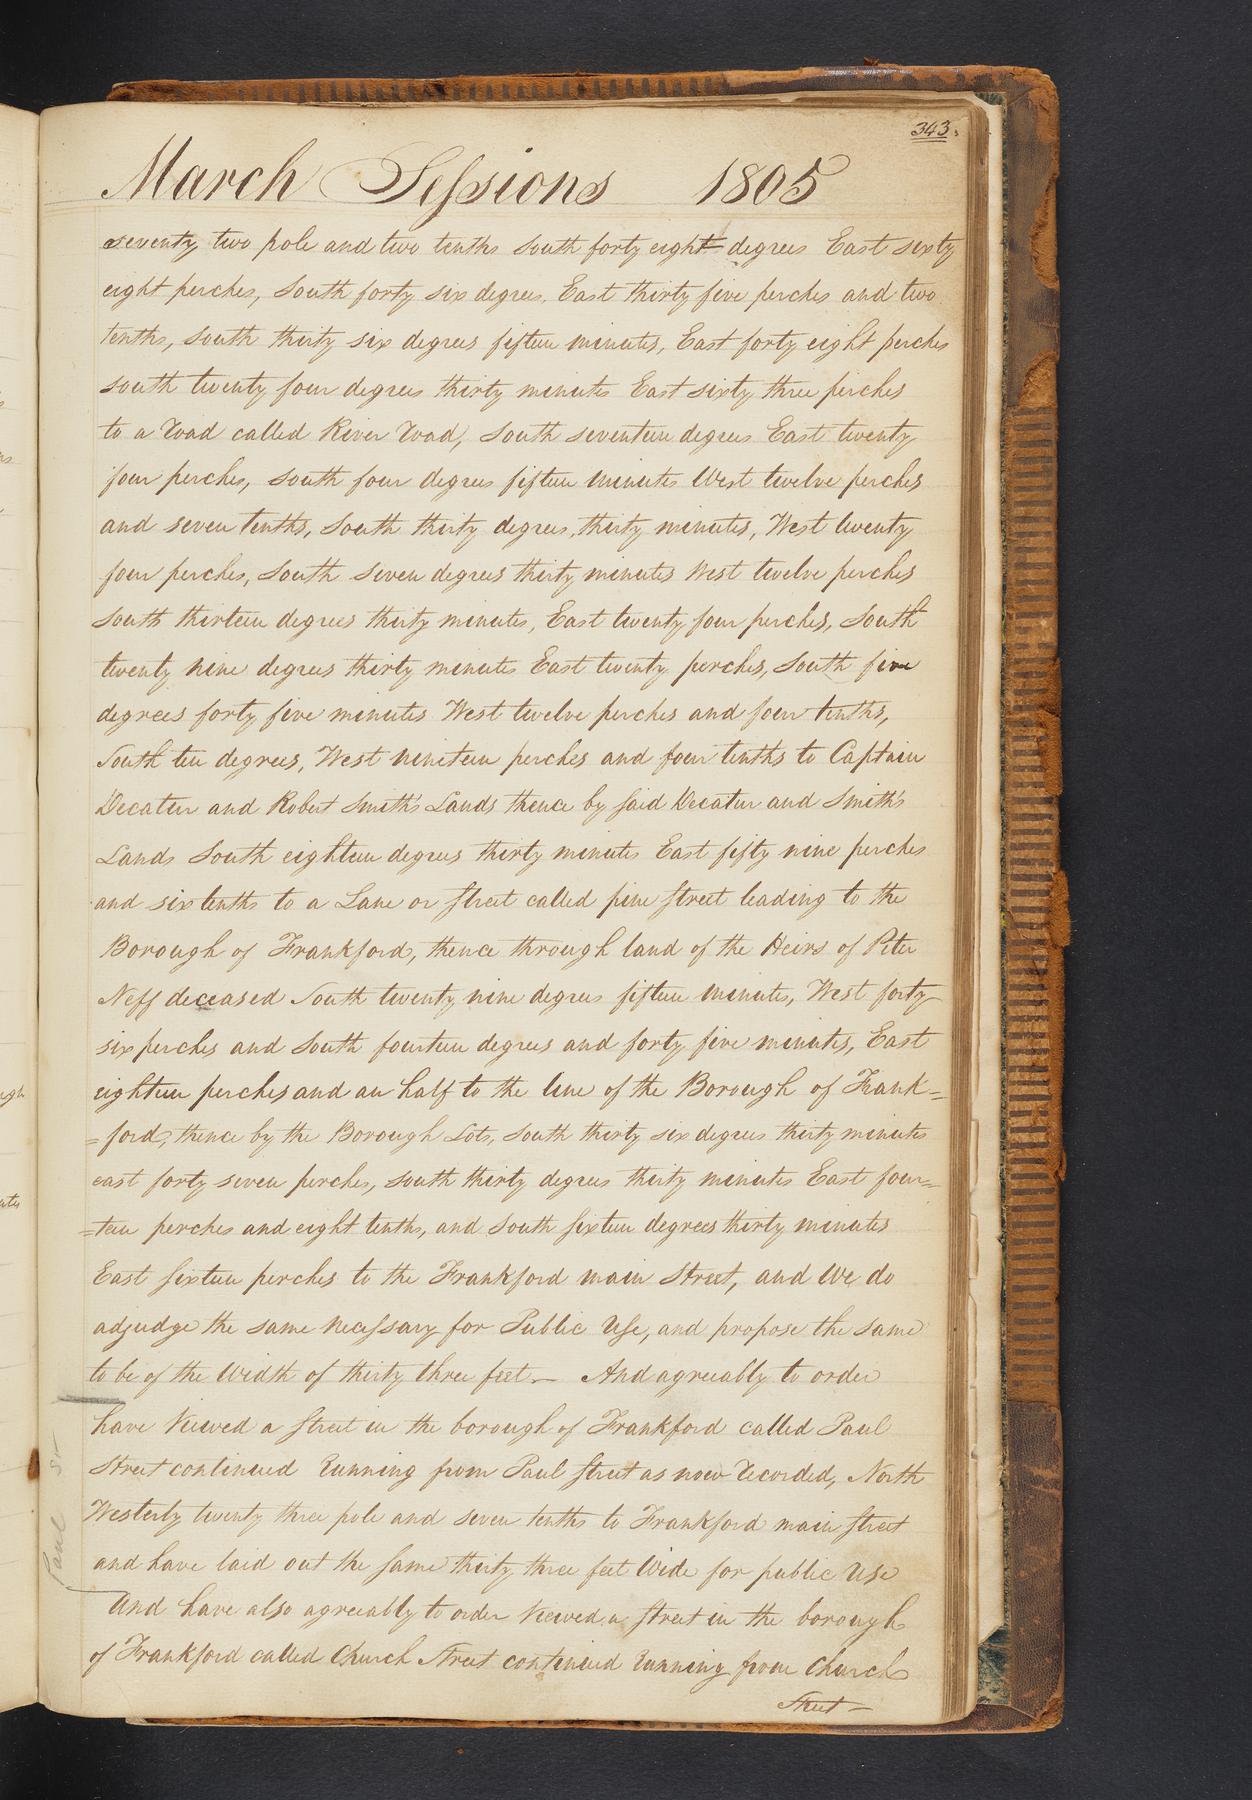 343.
March Sessions 1805
seventy two pole and two tenths South forty eight degrees East sixty
eight perches, South forty six degrees, East thirty five perches and two
tenths, South thirty six degrees fifteen minutes, East forty eight perches
South twenty four degrees thirty minutes East sixty three perches
to a Road called River Road, South seventeen degrees East twenty
four perches, South four degrees fifteen minutes West twelve perches
and seven tenths, South thirty degrees, thirty minutes, West twenty
four perches, South seven degrees thirty minutes West twelve perches
South thirteen degrees thirty minutes, East twenty four perches, South
twenty nine degrees thirty minutes East twenty perches, South five
degrees forty five minutes West twelve perches and four tenths,
South ten degrees, West nineteen perches and four tenths to Captain
Decatur and Robert Smith's Lands thence by said Decatur and Smith's
Lands South eighteen degrees thirty minutes East fifty nine perches
and six tenths to a Lane or Street called pine Street leading to the
Borough of Frankford, thence through land of the Heirs of Peter
Neff deceased South twenty nine degrees fifteen minutes, West forty
six perches and South fourteen degrees and forty five minutes, East
eighteen perches and an half to the line of the Borough of Frank=
=ford, thence by the Borough Lots, South thirty six degrees thirty minutes
east forty seven perches, South thirty degrees thirty minutes East four=
=teen perches and eight tenths, and South sixteen degrees thirty minutes
East sixteen perches to the Frankford main Street, and We do
adjudge the same necessary for Public Use, and propose the same
to be of the Width of thirty three feet — And agreeably to order
have Viewed a Street in the borough of Frankford called Paul
Street continued Running from Paul Street as now Recorded, North
Westerly twenty three pole and seven tenths to Frankford main Street
and have laid out the same thirty three feet Wide for public Use
And have also agreeably to order Viewed a Street in the borough
of Frankford called Church Street continued Running from Church
Street —
Paul St